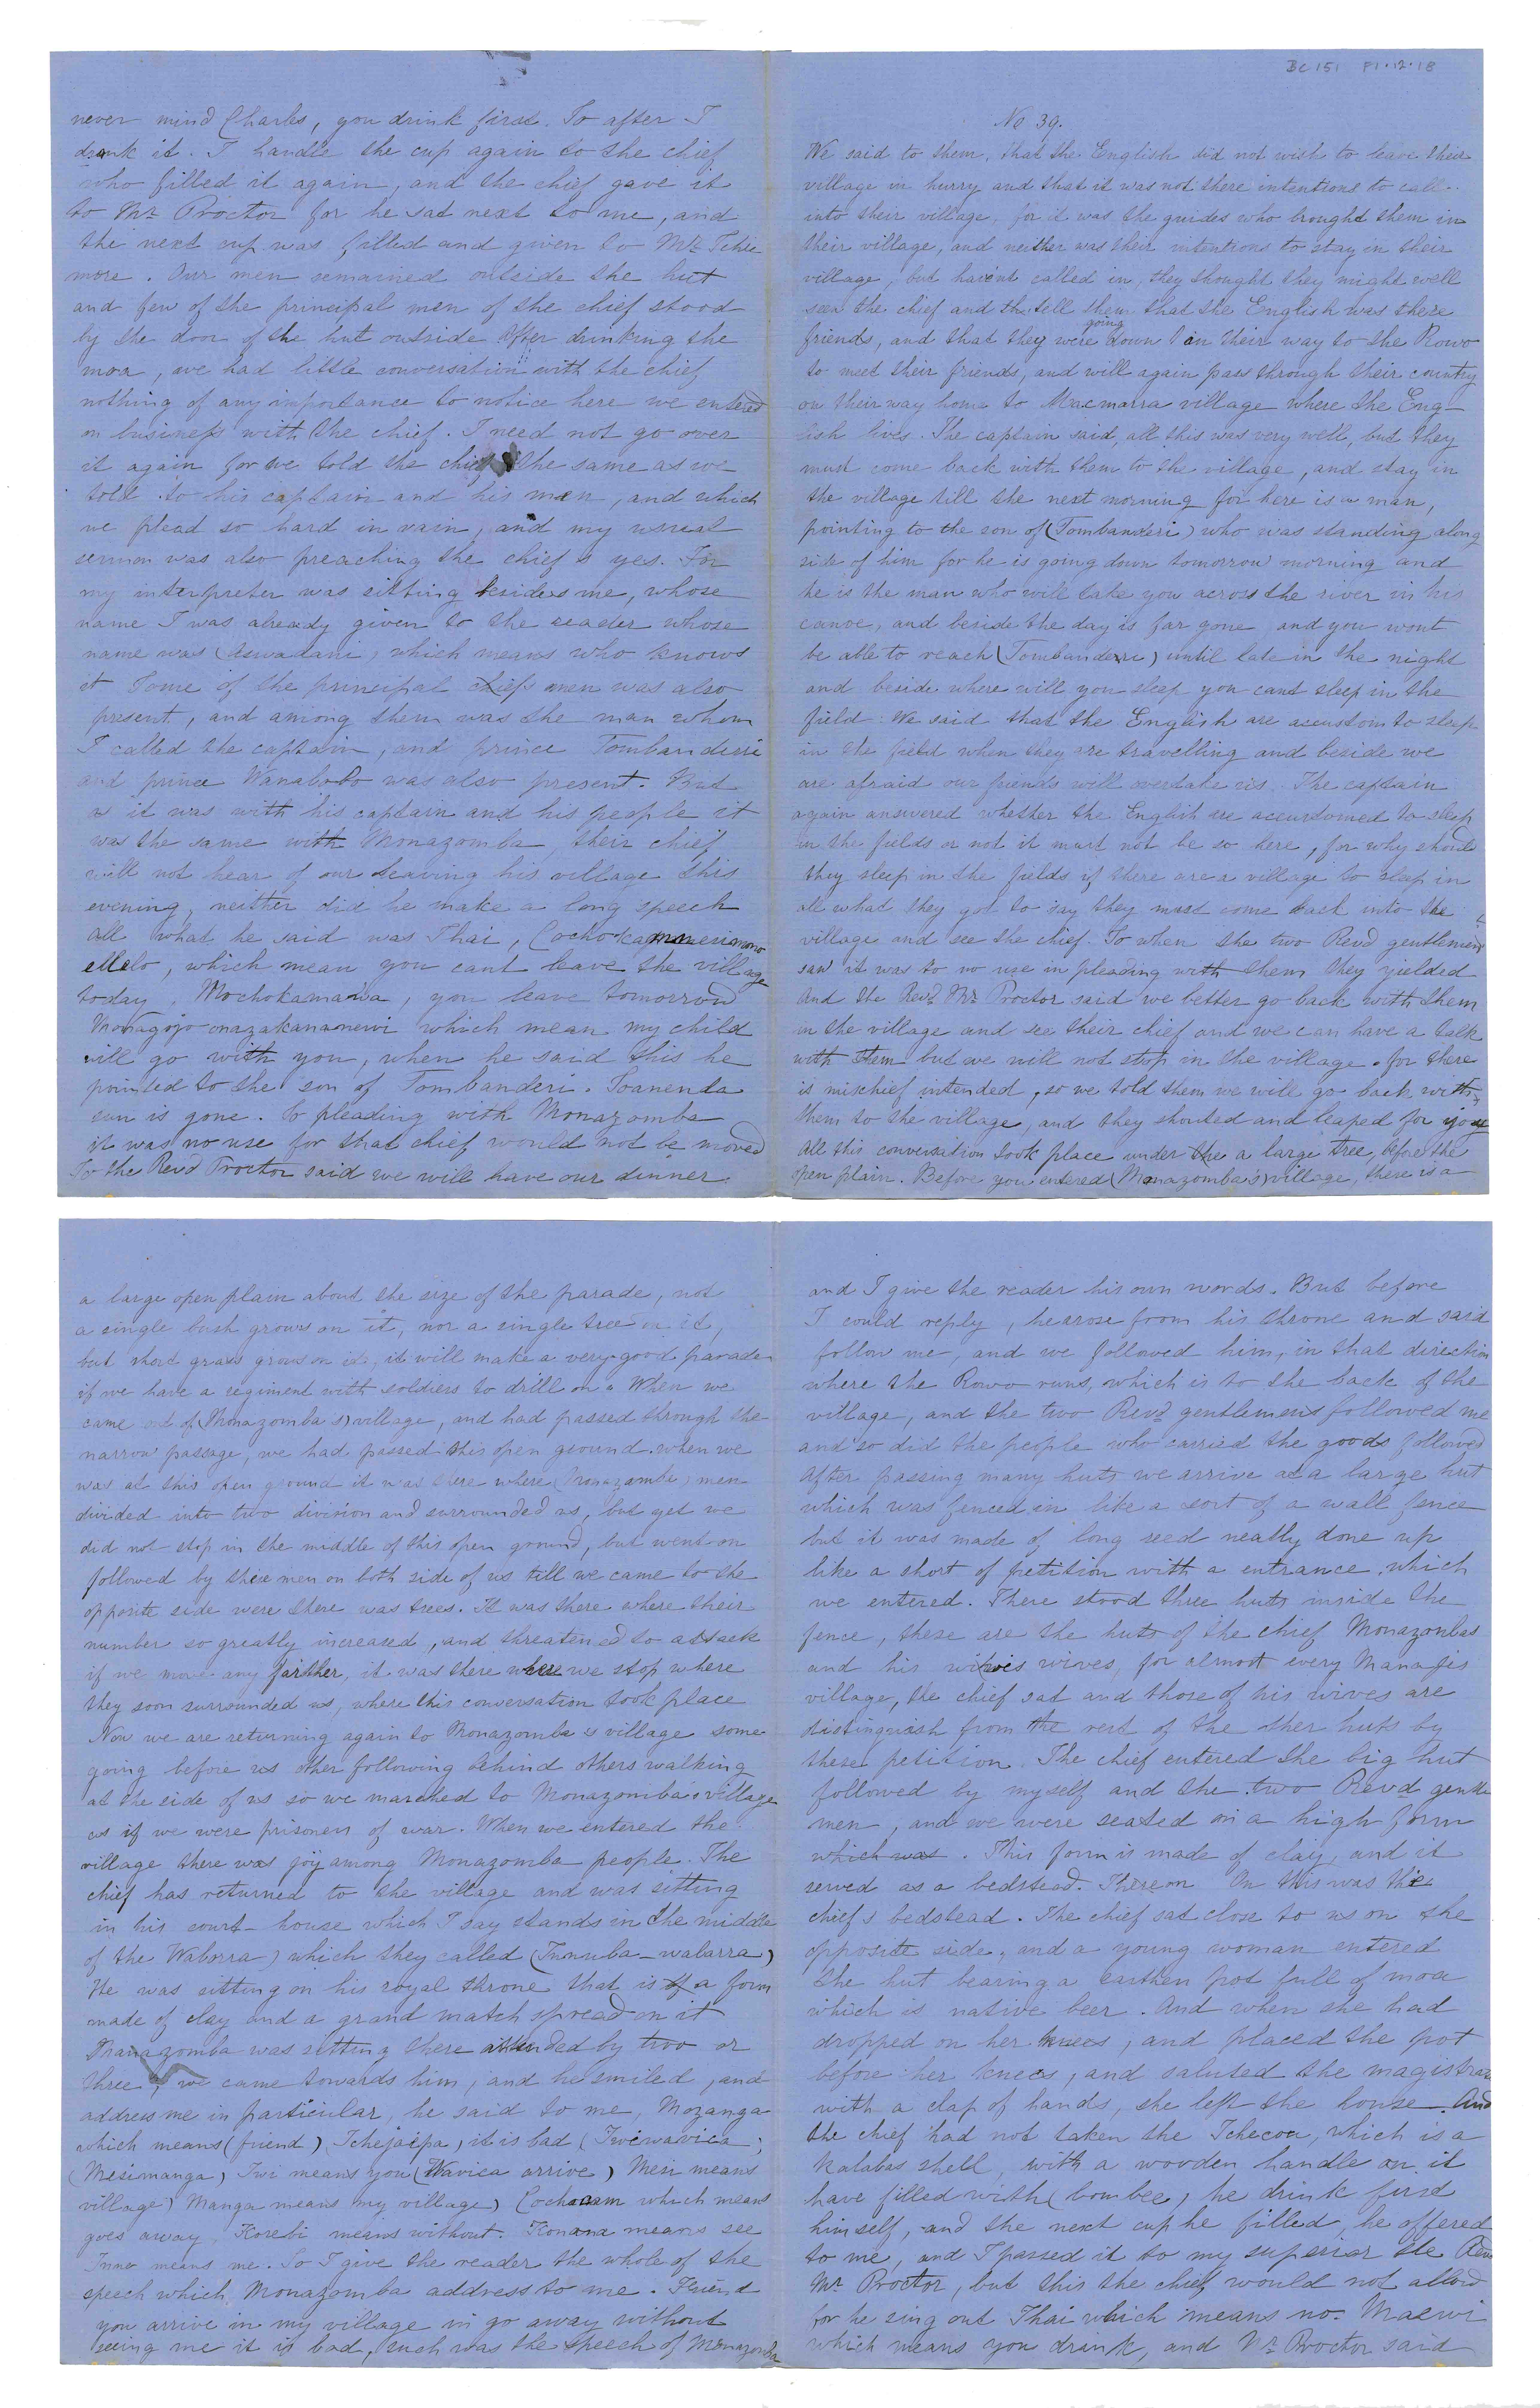 never mind Charles, you drink first. So after I
drank it. I handle the cup again to the chief
who filled it again, and the chief gave it
to Mr Proctor for he sat next to me, and
the next cup was filled and given to Mr Schu
more. Our men remained outside the hut
and few of the principal men of the chief stood
by the door of the hut outside After drinking the
moa, we had little conversation with the chief
nothing of any importance to notice here we entered
on business with the chief. I need not go over
it again for we told the chief the same as we
told to his captain and his men, and which
we plead so hard in vain, and my usual
sermon was also preaching the chief s yes. For
my interpreter was sitting besides me, whose
name I was already given to the reader whose
name was (Aswadani) which means who knows
it Some of the principal chiefs men was also
present, and among them was the man whom
I called the captain, and prince Tombanderi
and prince Wanabobo was also present. But
as it was with his captain and his people it
was the same with Monazomba, their chief
will not hear of our leaving his village this
evening, neither did he make a long speech
all what he said was Thai,
ellelo, which mean you cant leave the village
today, Mochokamawa, you leave tomorrow
Monagojo onazakananewi which mean my child
will go with you, when he said this he
pointed to the son of Tombanderi. Soanenda
sun is gone. So pleading with Monazomba
it was no use for that chief would not be moved
So the Revd Proctor said we will have our dinner.
BC 151 F1.12.18
No 39.
We said to them, that the English did not wish to leave their
village in hurry and that it was not there intentions to call
into their village, for it was the guides who brought them in
their village, and neither was their intentions to stay in their
village, but havent called in, they thought they might well
seen the chief and the tell them that the English was there
friends, and that they were going down on their way to the Rowo
to meet their friends, and will again pass through their country
on their way home to Macmarra village where the Eng-
lish lives. The captain said, all this was very well, but they
must come back with them to the village, and stay in
the village till the next morning for here is a man,
pointing to the son of (Tombanderi) who was standing along
side of him for he is going down tomorrow morning and
he is the man who will take you across the river in his
canoe, and beside the day is far gone and you wont
be able to reach (Tombanderi) until late in the night
and beside where will you sleep you cant sleep in the
field. We said that the English are accustom to sleep
in the field when they are travelling and beside we
are afraid our friends will overtake us. The captain
again answered whether the English are accustomed to sleep
in the fields or not it must not be so here, for why should
they sleep in the fields if there are a village to sleep in
all what they got to say they must come back into the
village and see the chief. So when the two Revd gentlemens
saw it was to no use in pleading with them they yielded
And the Revd Mr Proctor said we better go back with them
in the village and see their chief and we can have a talk
with them but we will not stop in the village. for there
is mischief intended, so we told them we will go back with
them to the village, and they shouted and leaped for joy
All this conversation took place under the a large tree, before the
open plain. Before you entered (Monazomba's) village, there is a
a large open plain about the size of the parade, not
a single bush grows on it, nor a single tree on it,
but short grass grows on it, it will make a very good parade
if we have a regiment with soldiers to drill on. When we
came out of (Monazomba's) village, and had passed through the
narrow passage, we had passed this open ground. when we
was at this open ground it was there where (Monazomba) men
divided into two division and surrounded us, but yet we
did not stop in the middle of this open ground, but went on
followed by these men on both side of us till we came to the
opposite side were there was trees. It was there where their
number so greatly increased, and threatened to attack
if we move any farther, it was there where we stop where
they soon surrounded us, where this conversation took place
Now we are returning again to Monazomba s village some
going before us other following behind others walking
at the side of us so we marched to Monazomba's village
as if we were prisoners of war. When we entered the
village there was joy among Monazomba people. The
chief has returned to the village and was sitting
in his court-house which I say stands in the middle
of the Waborra) which they called (Innuba-wabarra)
He was sitting on his royal throne that is of a form
made of clay and a grand match spread on it
Manazomba was sitting there attended by two or
three, we came towards him, and he smiled, and
address me in particular, he said to me, Mozanga
which means (friend) Tchejaipa) it is bad (Iwiwavica,
(Mesimanga) Iwi means you (Wavica arrive) Mesi means
village) Manga means my village) Cochoam which means
goes away, Korebi means without. Konana means see
Inno means me. So I give the reader the whole of the
speech which Monazomba address to me. Friend
you arrive in my village in go away without
seeing me it is bad, such was the speech of Monazomba
and I give the reader his own words. But before
I could reply, he arose from his throne and said
follow me, and we followed him, in that direction
where the Rowo runs, which is to the back of the
village, and the two Revd gentlemens followed me
and so did the people who carried the goods followed
After passing many huts we arrive at a large hut
which was fenced in like a sort of a wall fence
but it was made of long reed neatly done up
like a short of petition with a entrance which
we entered. There stood three huts inside the
fence, these are the huts of the chief Monazonbas
and his wives, for almost every Manajis
village, the chief sat and those of his wives are
distinguish from the rest of the other huts by
these petition. The chief entered the big hut
followed by myself and the two Revd gentle
men, and we were seated on a high form
which was. This form is made of clay, and it
served as a bedstead. Thereon On this was the
chief s bedstead. The chief sat close to us on the
opposite side, and a young woman entered
the hut bearing a earthen pot full of moa
which is native beer. And when she had
dropped on her knees, and placed the pot
before her knees, and saluted the magistrate
with a clap of hands, she left the house. And
the chief had not taken the Tchecoa, which is a
Kalabas shell, with a wooden handle on it
have filled with (bombee) he drink first
himself, and the next cup he filled, he offered
to me, and I passed it to my superior the Revd
Mr Proctor, but this the chief would not allow
for he sing out Thai which means no. Maewi
which means you drink, and Mr Proctor said